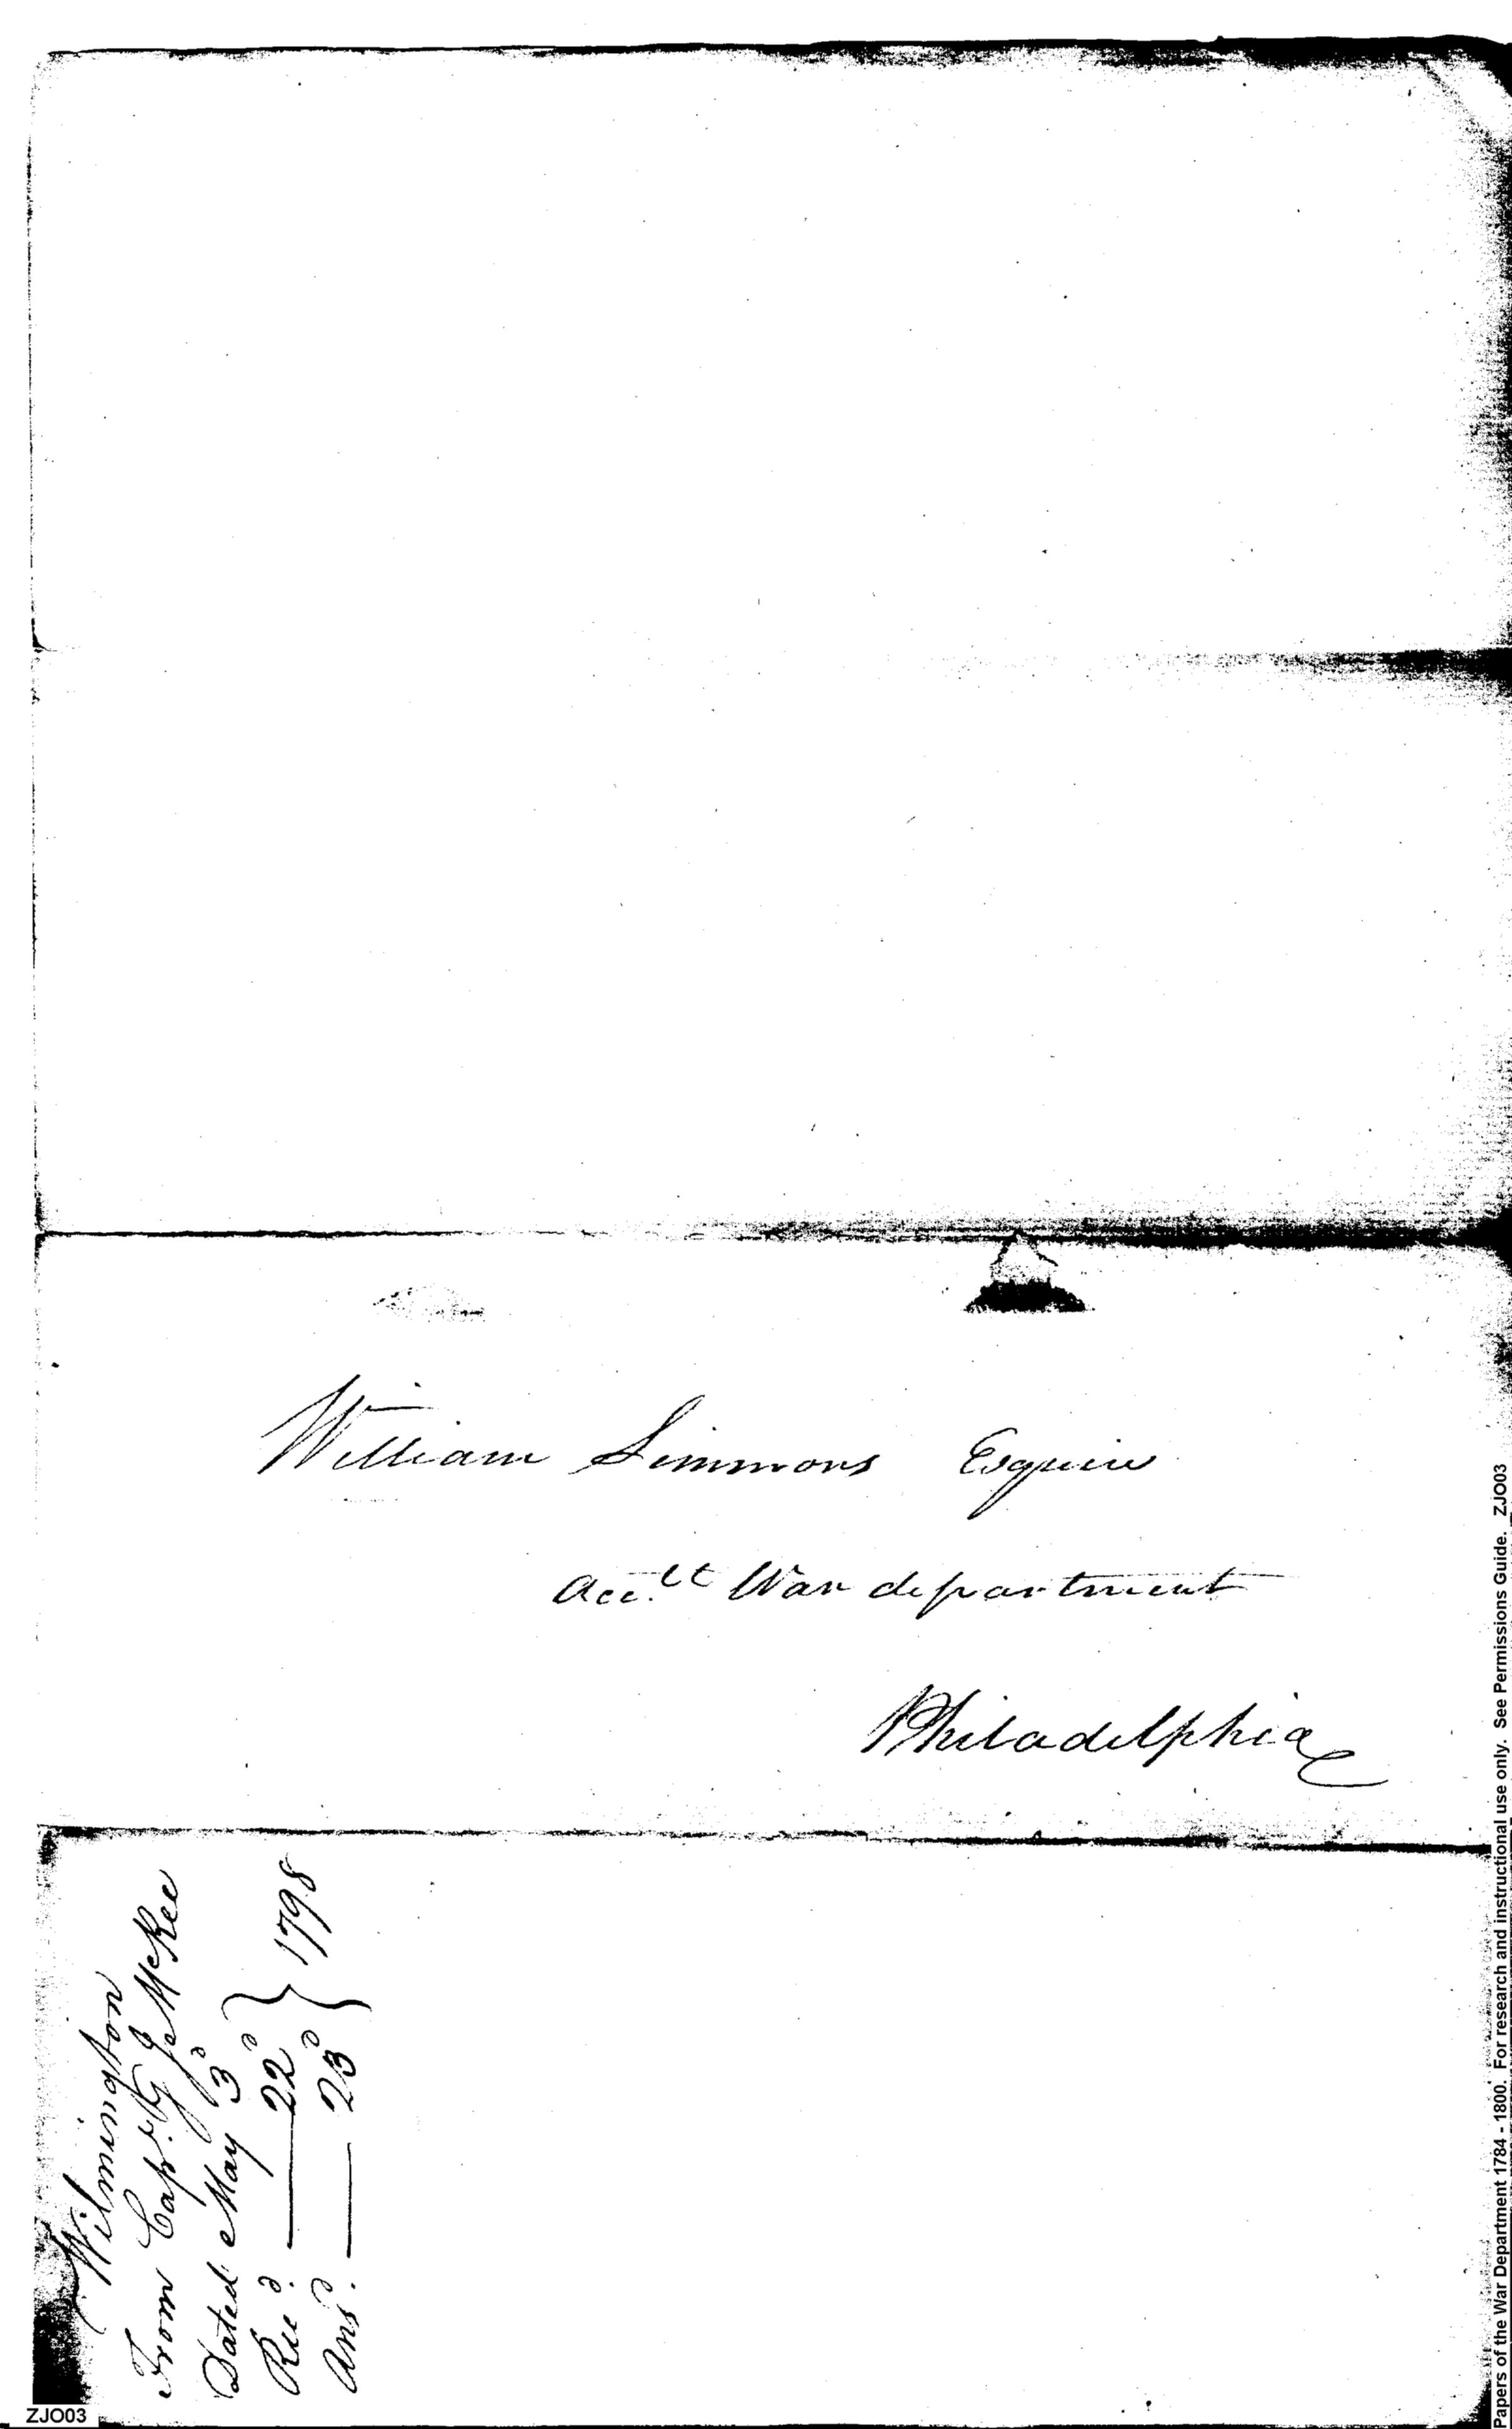 William Simmons Esquire
Acc.tt War department
Philadelphia
Wilmington
From Capt. G J McRee
Dated May 3d
Recd. — 22d } 1798
Ansd. — 23d
ZJO03
Papers of the War Department 1784 - 1800. For research and instructional use only. See Permissions Guide. ZJO03